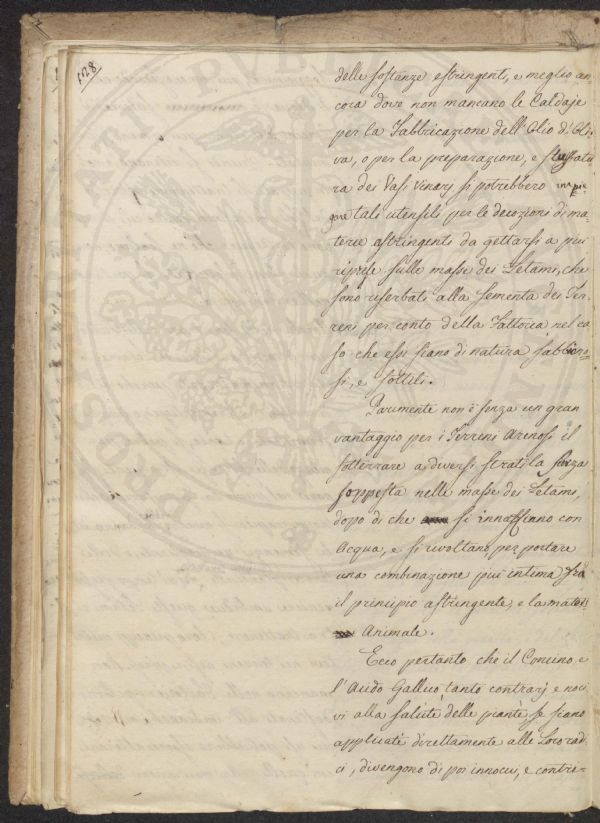 128
delle sostanze astringenti, e meglio an-
cora dove non mancano le Caldaje
per la Fabbricazione dell'Olio d'Oli-
va, o per la preparazione, e stuffatu
ra dei Vasi vinarj si potrebbero impie
gare tali utensili per le decozioni di ma-
terie astringenti da gettarsi a più
riprese sulle masse dei Letami, che
sono riserbati alla sementa dei Ter-
reni per conto della Fattoria nel ca
so che essi siano di natura sabbiono-
si, e sottili.
Parimente non è senza un gran
vantaggio per i Terreni Arenosi il
sotterrare a diversi strati la
soppesta nelle masse dei Letami,
dopo di che si innaffino con
Acqua, e si rivoltano per portare
una combinazione più intima fra
il principio astringente, e la materi
Animale.
Ecco pertanto che il Concino e
l'Acido Gallico tanto contrarj e noci
vi alla salute delle piante, se siano
applicati direttamente alle Loro radi
ci, divengono di poi innocui, e contri-
PVBLICAE
PROSPERITATI